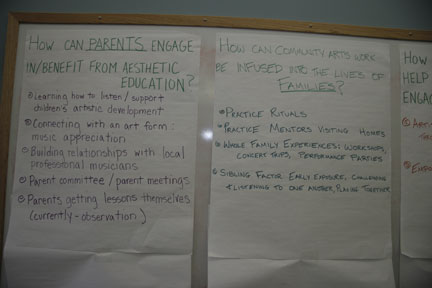 How can PARENTS ENGAGE
IN/BENEFIT FROM AESTHETIC
EDUCATION?
Learning how to listen / support
children's artistic development
Connecting with an art form:
music appreciation
Building relationships with local
professional musicians
Parent committee / parent meetings
Parents getting lessons themselves
(currently - observation)
HOW CAN COMMUNITY ARTS WORK
BE INFUSED INTO THE LIVES OF
FAMILIES?
PRACTICE RITUALS
PRACTICE MENTORS VISITING HOMES
WHOLE FAMILY EXPERIENCES: WORKSHOPS,
CONCERT TRIPS, PERFORMANCE PARTIES
SIBLING FACTOR: EARLY EXPOSURE, CHALLENGING
& LISTENING TO ONE ANOTHER, PLAYING TOGETHER
HOW
HELP
ENGAG